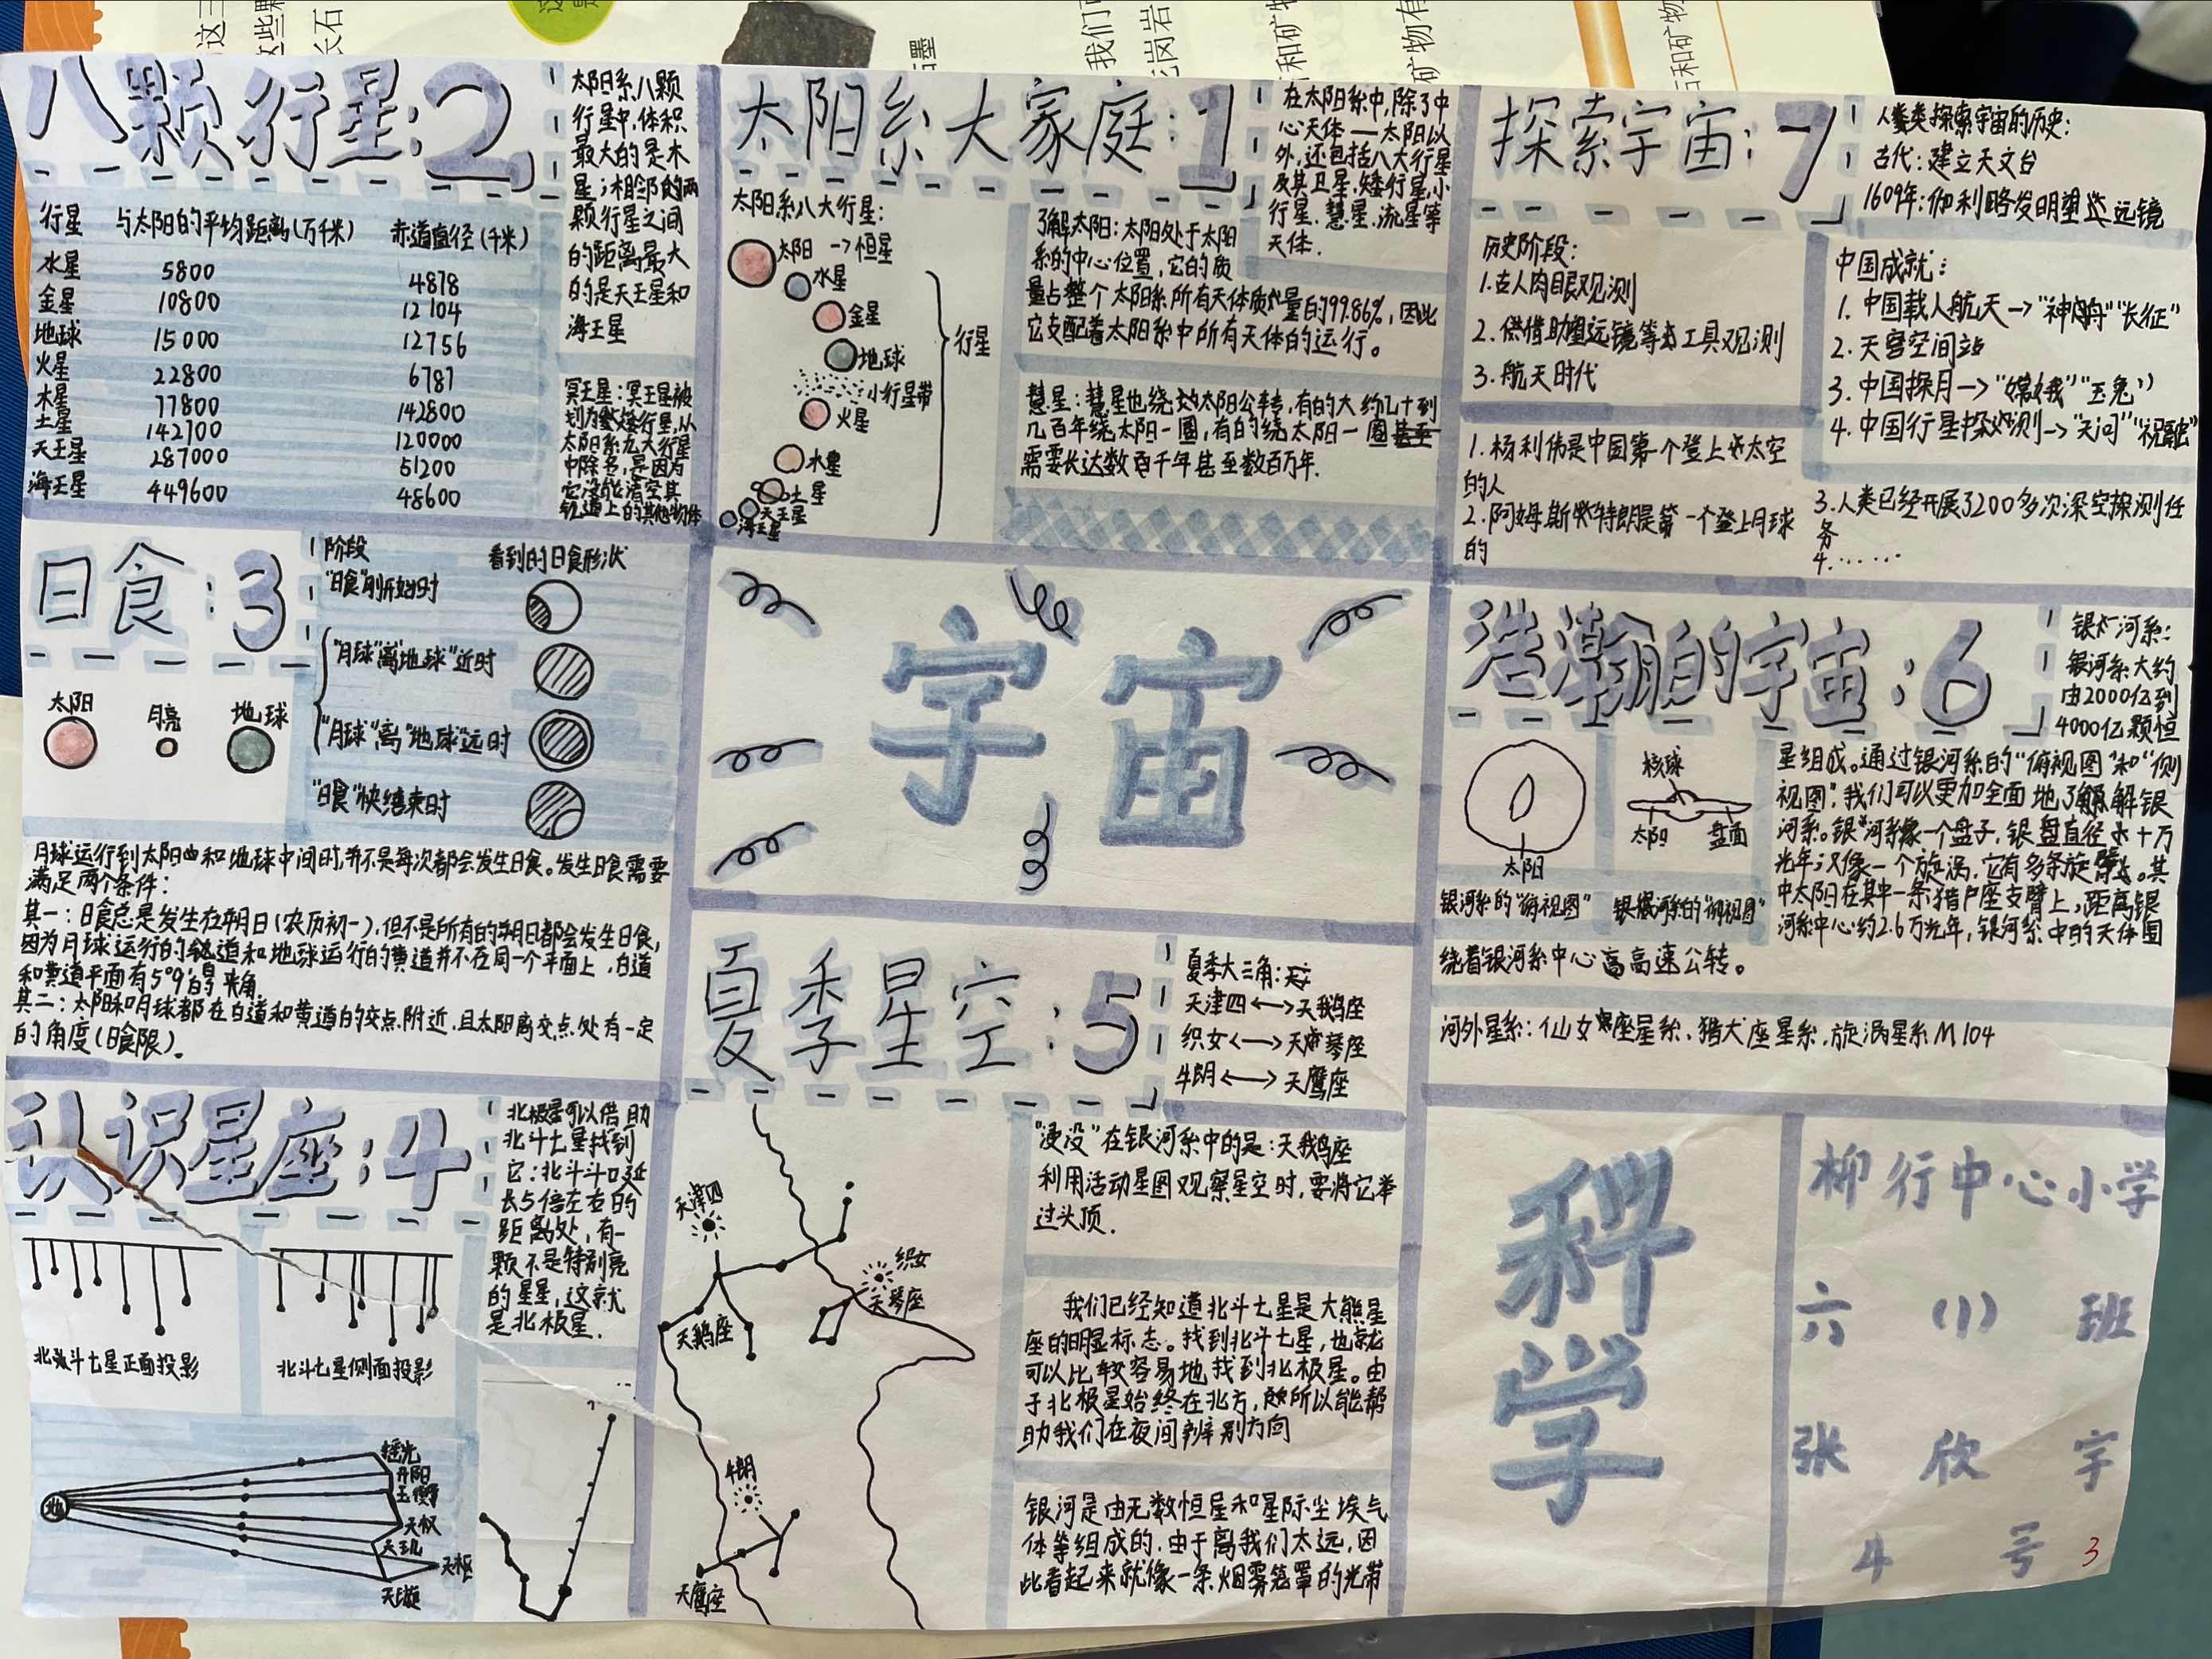 八颗行星:2
太阳系八颗
行星中,体积
最大的是木
星;相邻的两
颗行星之间
的距离最大
的是天王星和
海王星
行星 与太阳的平均距离(万千米) 赤道直径(千米)
水星 5800 4878
金星 10800 12104
地球 15000 12756
火星 22800 6787
木星 77800 142800
土星 142700 120000
天王星 287000 51200
海王星 449600 48600
冥王星:冥王星被
划为矮行星,从
太阳系九大行星
中除名,是因为
它没能清空其
轨道上的其他物体
太阳系大家庭:1
在太阳系中,除了中
心天体—太阳以
外,还包括八大行星
及其卫星、矮行星,小
行星、慧星、流星等
天体.
太阳系八大行星:
太阳→恒星
水星
金星
地球
小行星带
火星
木星
土星
天王星
海王星
行星
了解太阳:太阳处于太阳
系的中心位置,它的质
量占整个太阳系所有天体质量的99.86%,因此
它支配着太阳系中所有天体的运行。
慧星:慧星也绕太阳公转,有的大约几十到
几百年绕太阳一圈,有的绕太阳一圈甚至
需要长达数百千年甚至数百万年.
探索宇宙:7
人类探索宇宙的历史:
古代:建立天文台
1609年:伽利略发明望远镜
历史阶段:
1.古人肉眼观测
2.借助望远镜等工具观测
3.航天时代
中国成就:
1.中国载人航天→"神舟""长征"
2.天宫空间站
3.中国探月→"嫦娥""玉兔"
4.中国行星探测→"天问""祝融"
1.杨利伟是中国第一个登上太空
的人
2.阿姆斯特朗是第一个登上月球
的
3.人类已经开展了200多次深空探测任
务
4.……
日食:3
阶段 看到的日食形状
"日食"刚开始时
"月球"离"地球"近时
"月球"离"地球"远时
"日食"快结束时
太阳 月亮 地球
月球运行到太阳和地球中间时,并不是每次都会发生日食。发生日食需要
满足两个条件:
其一:日食总是发生在朔日(农历初一),但不是所有的朔日都会发生日食,
因为月球运行的轨道和地球运行的黄道并不在同一个平面上,白道
和黄道平面有5°9′的夹角
其二:太阳和月球都在白道和黄道的交点附近,且太阳离交点处有一定
的角度(日食限)。
宇宙
浩瀚的宇宙:6
银河系:
银河系大约
由2000亿到
4000亿颗恒
星组成。通过银河系的"俯视图"和"侧
视图",我们可以更加全面地了解银
河系。银河系像一个盘子,银盘直径十万
光年;又像一个旋涡,它有多条旋臂。其
中太阳在其中一条猎户座支臂上,距离银
河系中心约2.6万光年,银河系中的天体围
绕着银河系中心高速公转。
太阳
核球
太阳 盘面
银河系的"俯视图"
银河系的"侧视图"
河外星系:仙女座星系、猎犬座星系、旋涡星系M104
认识星座:4
北极星可以借助
北斗七星找到
它:北斗斗口延
长5倍左右的
距离处,有一
颗不是特别亮
的星星,这就
是北极星.
北斗七星正面投影
北斗七星侧面投影
地
摇光
开阳
玉衡
天权
天玑
天枢
天璇
夏季星空:5
夏季大三角:
天津四←→天鹅座
织女←→天琴座
牛郎←→天鹰座
天津四
织女
天琴座
天鹅座
牛郎
天鹰座
"浸没"在银河系中的是:天鹅座
利用活动星图观察星空时,要将它举
过头顶.
我们已经知道北斗七星是大熊星
座的明显标志。找到北斗七星,也就
可以比较容易地找到北极星。由
于北极星始终在北方,所以能帮
助我们在夜间辨别方向
银河是由无数恒星和星际尘埃气
体等组成的.由于离我们太远,因
此看起来就像一条烟雾笼罩的光带
科学
柳行中心小学
六(1)班
张欣宇
4号
3